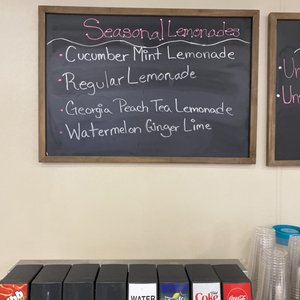 Seasonal Lemonades
Cucumber Mint Lemonade
Regular Lemonade
Georgia Peach Tea Lemonade
Watermelon Ginger Lime
Un
Un
WATER
Coke